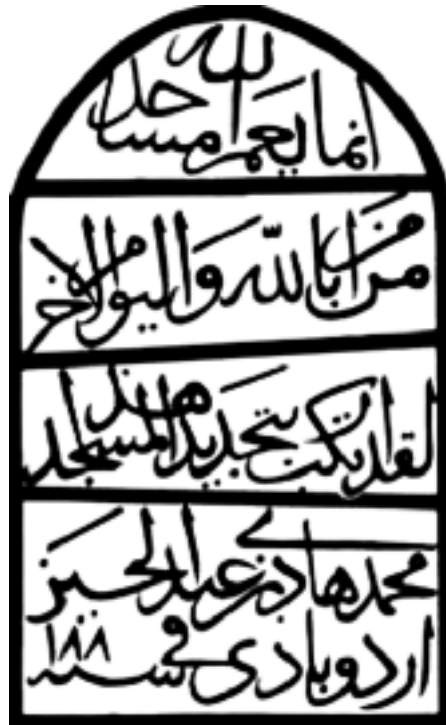 انما يعمر مساجد الله
من آمن بالله واليوم الاخر
لقد ارتكب بتجديد هذا المسجد
محمد هادي بن عبد الحسين
اردوبادي في سنه ١٨٨